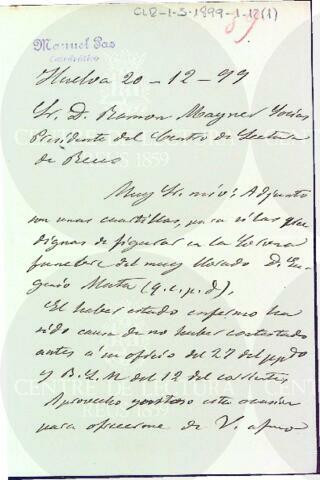 CLR-1-3.1899-1-12(1)
Manuel Pas
Catedrático
Huelva 20-12-99
Sr. D. Ramon Mayner
Presidente del Centro de Lectura
de Reus
Muy Sr. mio: Adjunto
son unas cuartillas, para si las cree
dignas de figurar en la Corona
funebre del muy llorado D. Eu
genio Mata (q.e.p.d).
El haber estado enfermo ha
sido causa de no haber contestado
antes a su oficio del 27 del ppdo
y B.L.M. del 12 del corriente.
Aprovecho gustoso esta ocasion
para ofrecerme de V. afmo
CENTRE DE LECTURA
REUS 1859